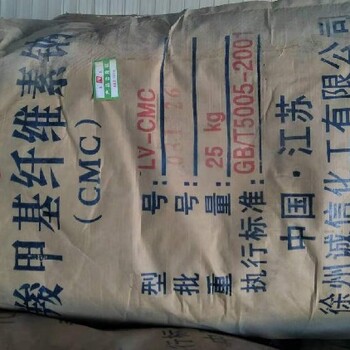 羧甲基纤维素钠
(CMC)
型 号: LV-CMC
批 号:
重 量: 25 kg
执行标准: GB/T5005-2001
中国·江苏
徐州诚信化工有限公